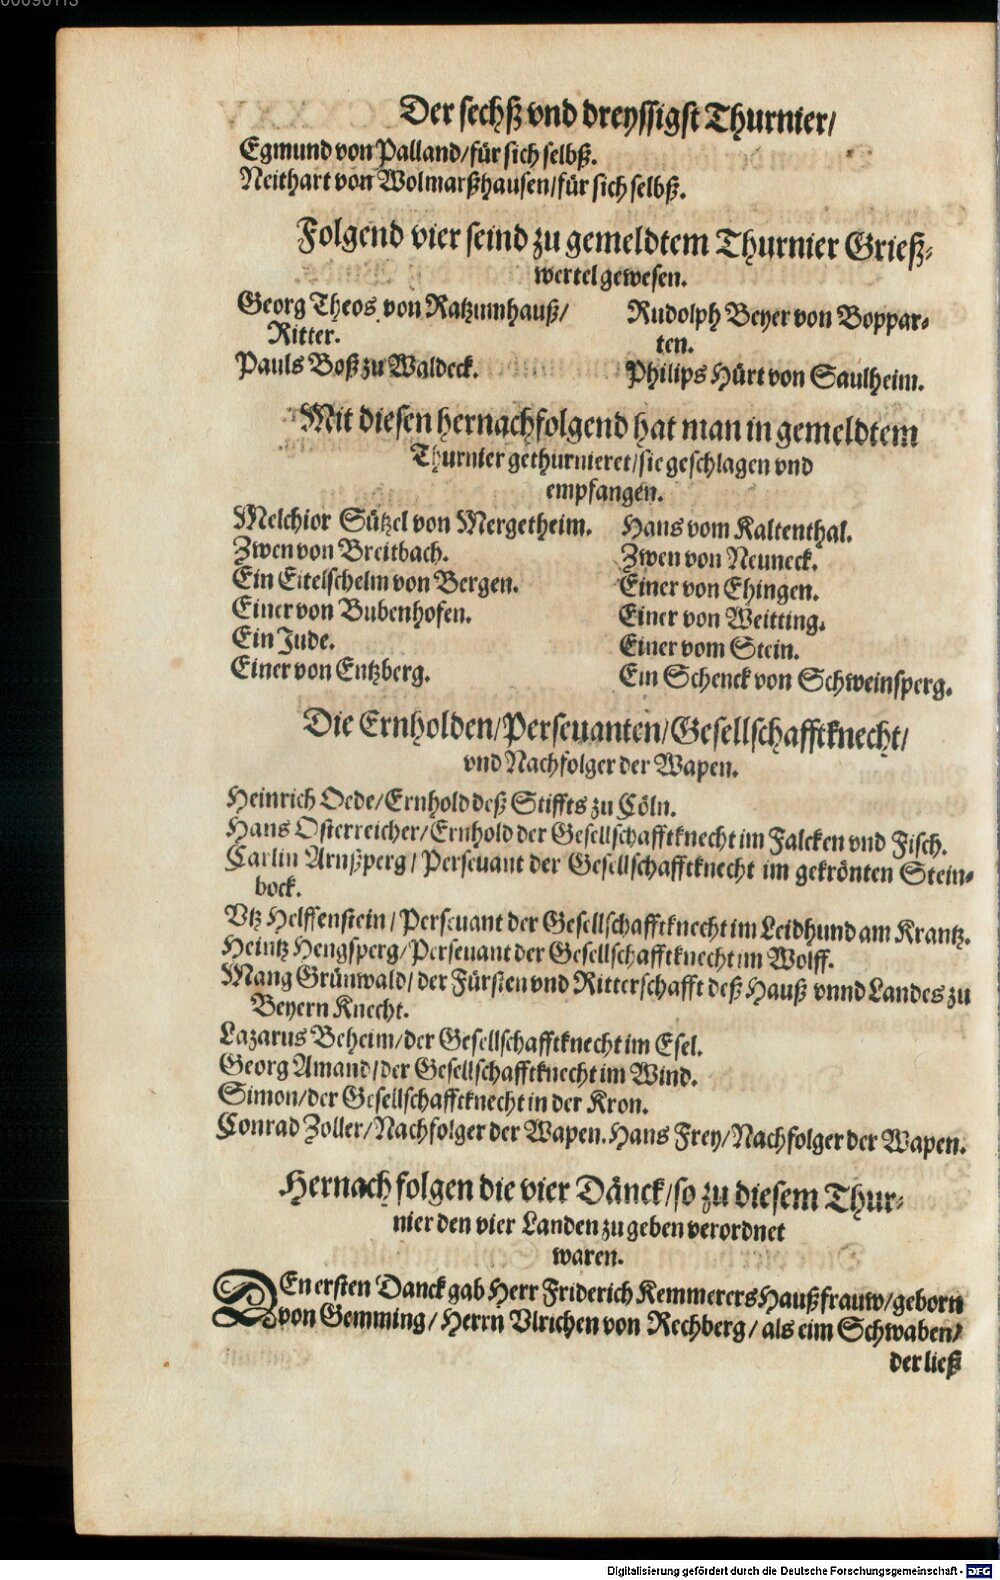 Der sechß vnd dreyssigst Thurnier/
Egmund von Palland/für sich selbß.
Neithart von Wolmarßhausen/für sich selbß.
Folgend vier seind zu gemeldtem Thurnier Grieß-
wertel gewesen.
Georg Theos von Ratzumhauß/
Ritter.
Pauls Boß zu Waldeck.
Rudolph Beyer von Boppar-
ten.
Philips Hürt von Saulheim.
Mit diesen hernachfolgend hat man in gemeldtem
Thurnier gethurnieret/sie geschlagen vnd
empfangen.
Melchior Sützel von Mergetheim.
Zwen von Breitbach.
Ein Eitelschelm von Bergen.
Einer von Bubenhofen.
Ein Jude.
Einer von Entzberg.
Hans vom Kaltenthal.
Zwen von Neuneck.
Einer von Ehingen.
Einer von Weitting.
Einer vom Stein.
Ein Schenck von Schweinsperg.
Die Ernholden/Perseuanten/Gesellschafftknecht/
vnd Nachfolger der Wapen.
Heinrich Oede/Ernhold deß Stiffts zu Cöln.
Hans Osterreicher/Ernhold der Gesellschafftknecht im Falcken vnd Fisch.
Carlin Arnßperg/Perseuant der Gesellschafftknecht im gekrönten Stein-
bock.
Vtz Helffenstein/Perseuant der Gesellschafftknecht im Leidhund am Krantz.
Heintz Hengsperg/Perseuant der Gesellschafftknecht im Wolff.
Mang Grünwald/der Fürsten vnd Ritterschafft deß Hauß vnnd Landes zu
Beyern Knecht.
Lazarus Beheim/der Gesellschafftknecht im Esel.
Georg Amand/der Gesellschafftknecht im Wind.
Simon/der Gesellschafftknecht in der Kron.
Conrad Zoller/Nachfolger der Wapen. Hans Frey/Nachfolger der Wapen.
Hernach folgen die vier Dänck/so zu diesem Thur-
nier den vier Landen zu geben verordnet
waren.
DEn ersten Danck gab Herr Friderich Kemmerers Haußfrauw/geborn
von Gemming/Herrn Vlrichen von Rechberg/als eim Schwaben/
der ließ
Digitalisierung gefördert durch die Deutsche Forschungsgemeinschaft - DFG